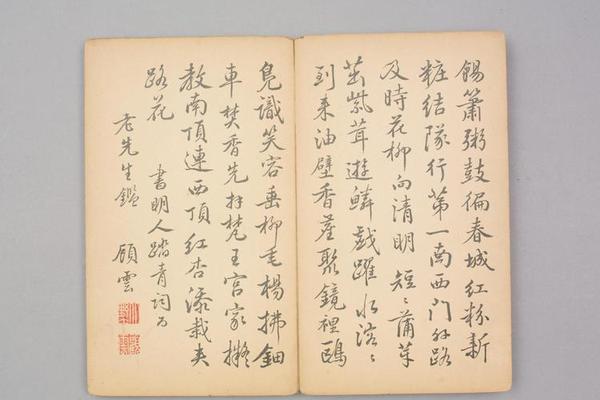 餳簫粥鼓徧春城紅粉新
粧結隊行第一南西門外路
及時花柳向清明 短〻蒲芽
茁紫茸遊鱗戲躍水溶〻
到来油壁香塵聚鏡裡鷗
鳧識笑容垂柳毛楊拂鈿
車焚香先拜梵王宮家擬
教南頂連西頂紅杏添栽夾
路花 書明人踏青詞为
老先生鑑 顧雲